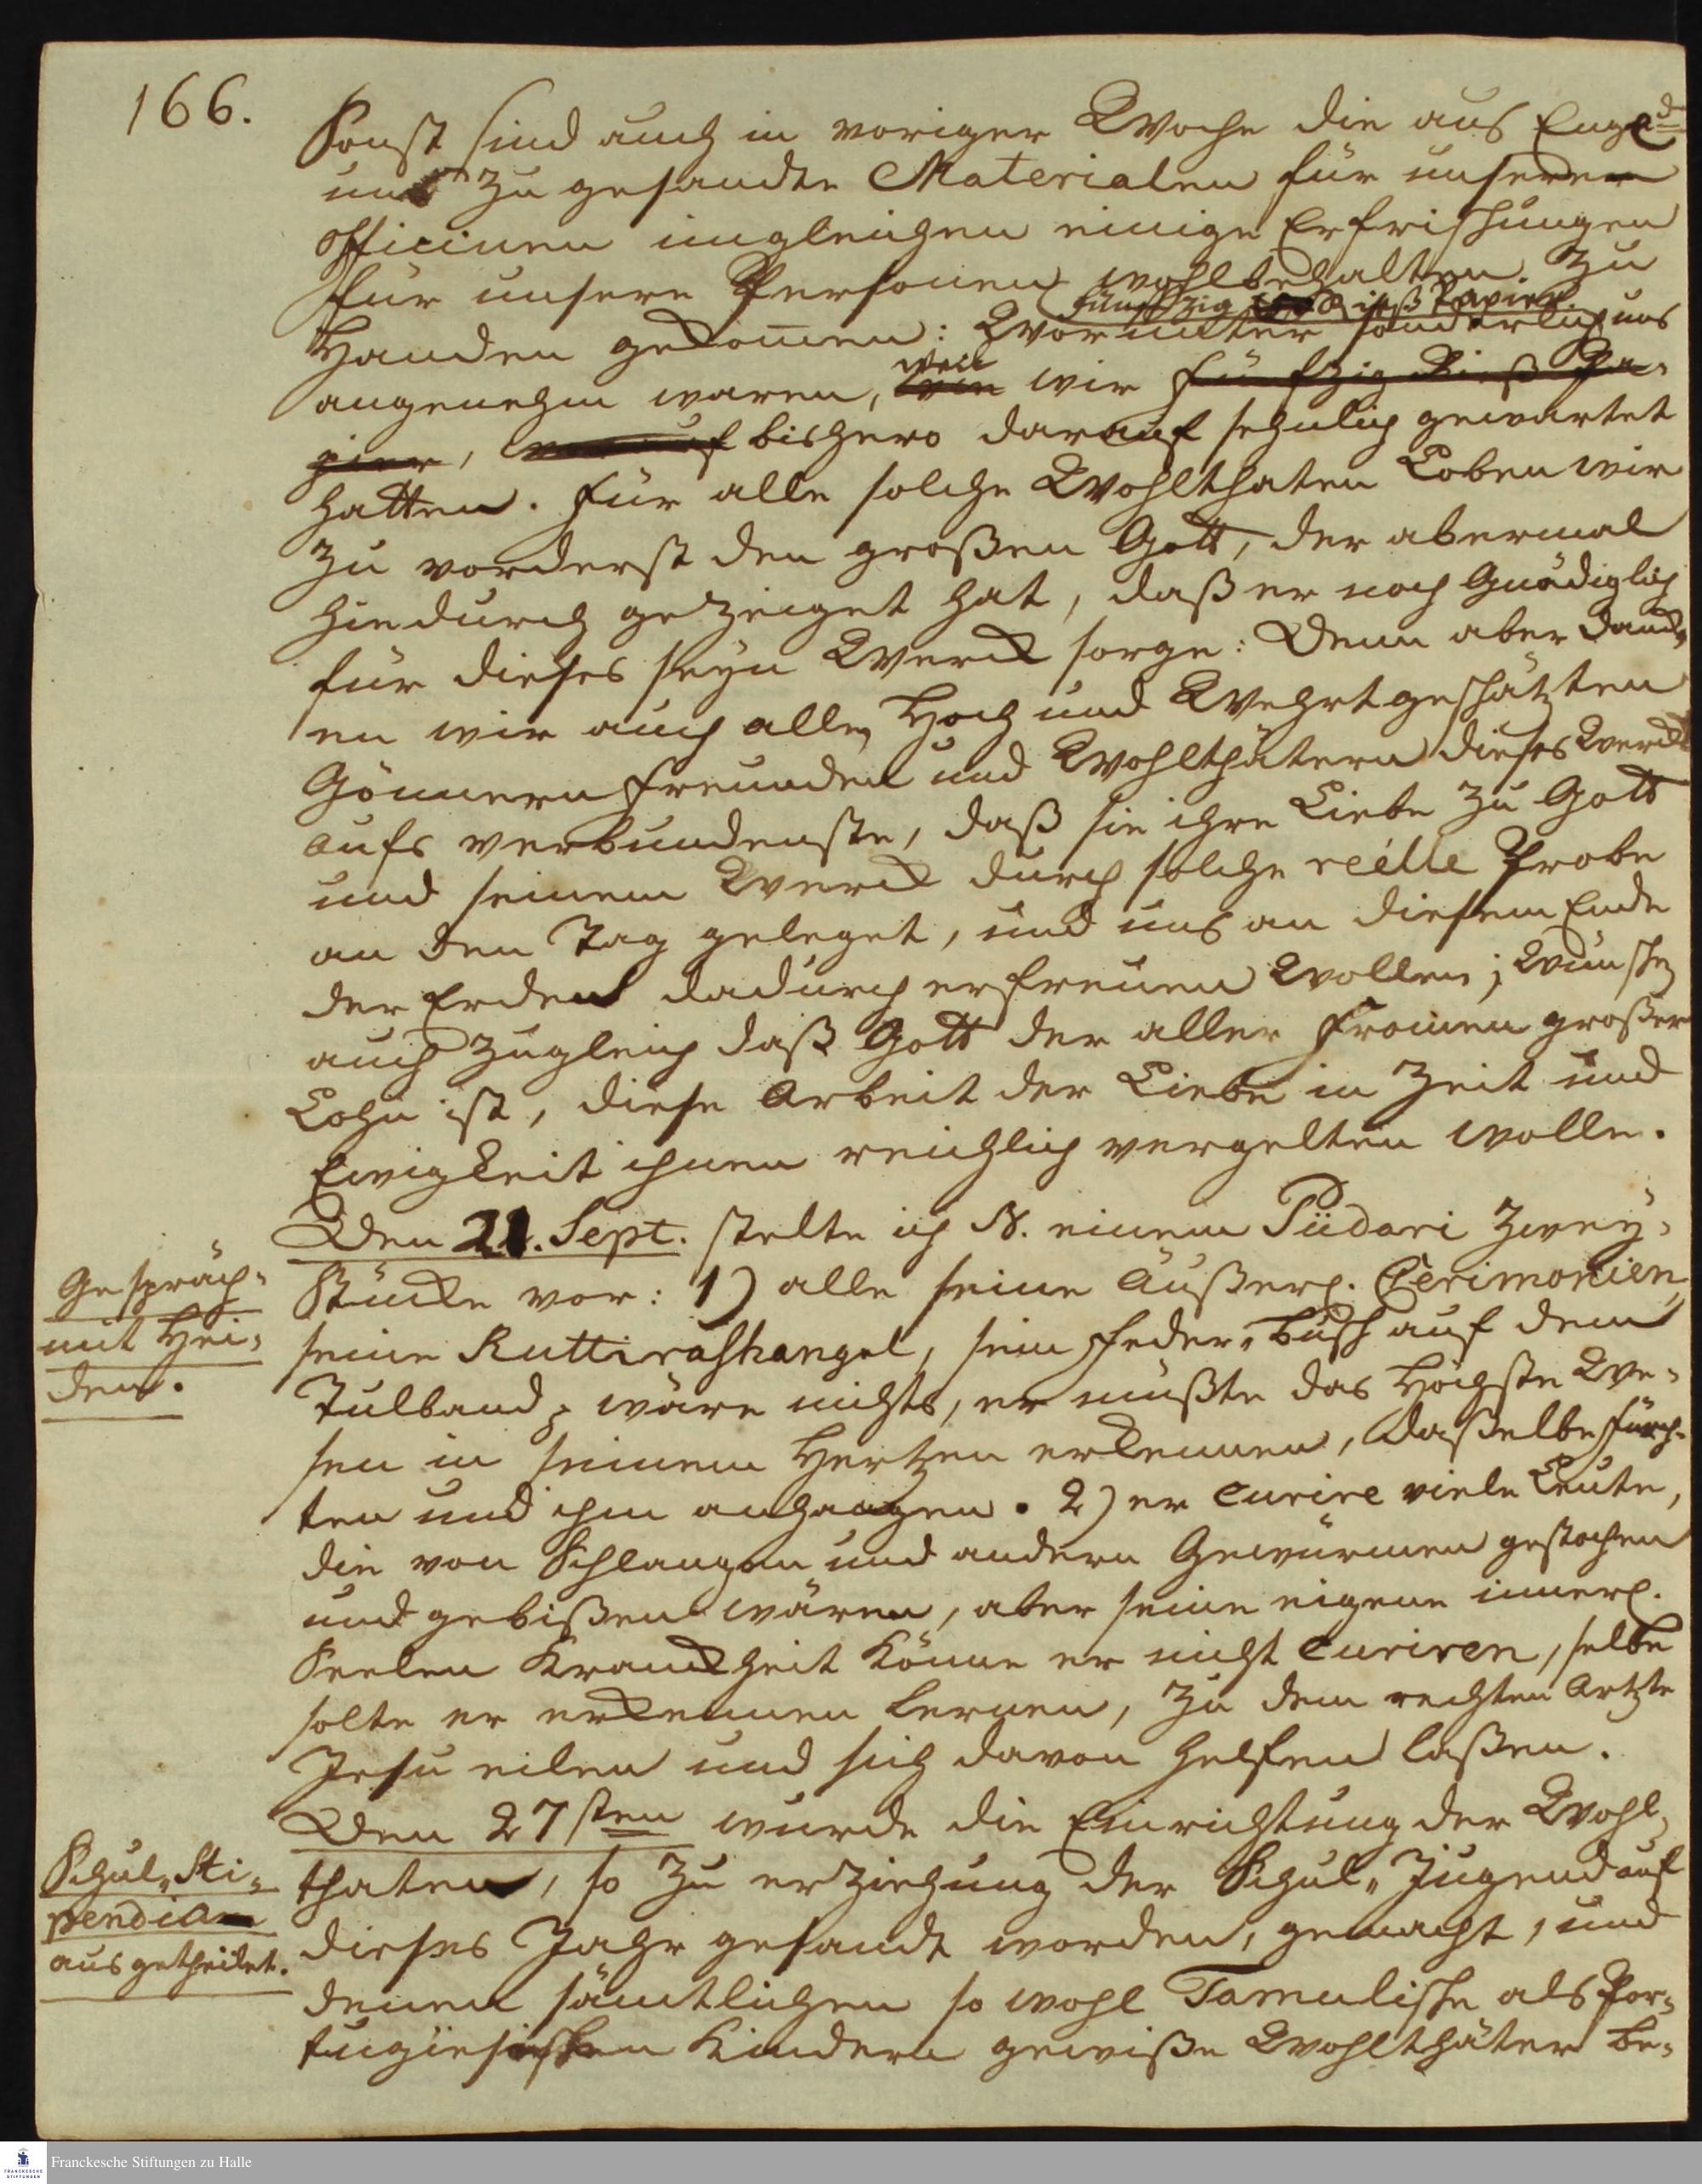 166.
Sonst sind auch in voriger Woche die aus Engl.d
uns zu gesandte Materialen für unseren
Officinen imgleichen einige Erfrischungen
für unsere Personen wohlbehalten zu
fünffzig Rieß Papier
Handen gekom̅en: Worunter sonderlich uns
angenehm waren, weil wir fünfzig Rieß Pa-
pier, bishero darauf sehnlich gewartet
hatten. Für alle solche Wohlthaten Loben wir
zu vorderst den großen Gott, der abermal
hiedurch gezeiget hat, daß er noch Gnädiglich
für dieses seyn Werck sorge: Denn aber danck-
en wir auch allen Hoch und Wehrtgeschätzten
Gönnern freunden und Wohlthätern dieses Wercks
aufs verbundenste, daß sie ihre Liebe zu Gott
und seinem Werck durch solche reélle Probe
an den Tag geleget, und uns an diesem Ende
der Erden dadurch erfreuen wollen; Wünschen
auch zugleich daß Gott der aller From̅en großer
Lohn ist, diese Arbeit der Liebe in Zeit und
Ewigkeit ihnen reichlich vergelten wolle.
Gespräch
mit Hei-
den.
Den 21. Sept. stelte ich N. einem Püdari zwey
Stücke vor: 1) alle seine äußerl. Cerimonien,
seine Ruttirashkangel, sein Feder-Busch auf dem
Tulband wäre nichts, er müßte das Höchste We-
sen in seinem Hertzen erkennen, daßelbe fürch-
ten und ihm anhangen. 2) er curire viele Leute,
die von Schlangen und andern Gewürmen gestochen
und gebißen wären, aber seine eigene innerl.
Seelen Kranckheit könne er nicht curiren, selbe
solte er erkennen lernen, zu dem rechten Artzte
Jesu eilen und sich davon helfen laßen.
Schul-Sti-
pendia
ausgetheilet.
Den 27sten wurde die Einrichtung der Wohl-
thaten, so zu erziehung der Schul-Jugend auf
dieses Jahr gesandt worden, gemacht, und
denen sämtlichen so wohl Tamulische als Por-
tugiesischen Kindern gewiße Wohlthäter be-
Franckesche Stiftungen zu Halle